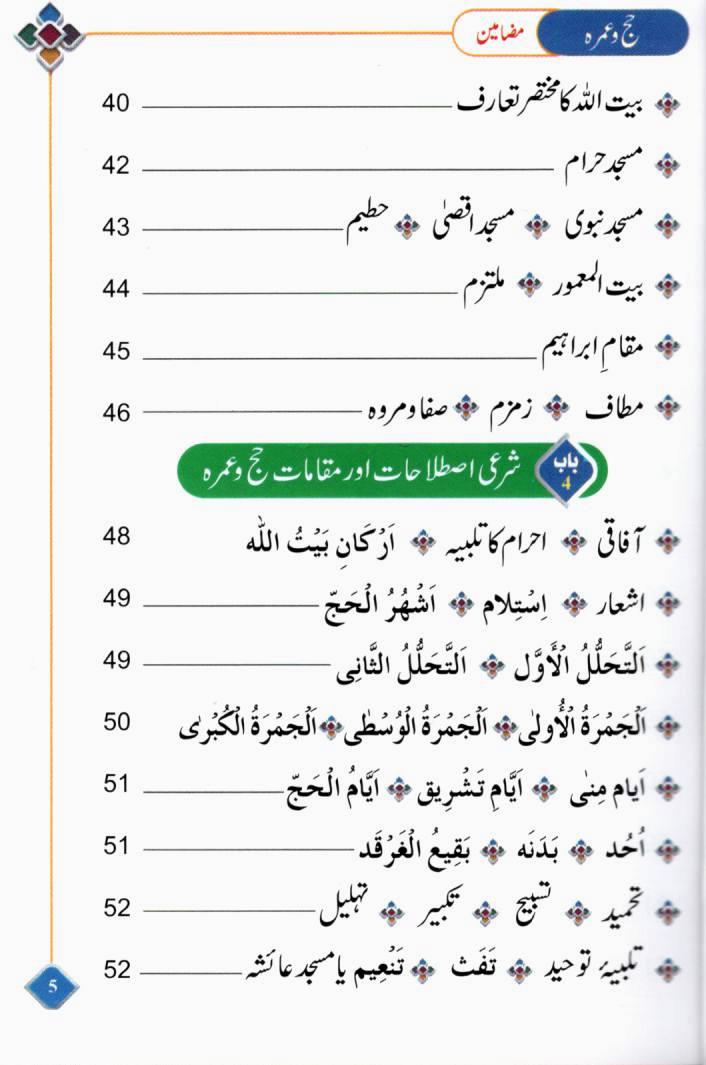 حج وعمرہ مضامین
بیت اللہ کا مختصر تعارف 40
مسجد حرام 42
مسجد نبوی مسجد اقصیٰ حطیم 43
بیت المعمور ملتزم 44
مقامِ ابراہیم 45
مطاف زمزم صفا و مروہ 46
باب 4 شرعی اصطلاحات اور مقامات حج وعمرہ
آفاقی احرام کا تلبیہ اَرْکَانِ بَیْتُ اللہ 48
اشعار اِسْتِلام اَشْهُرُ الْحَجّ 49
اَلتَّحَلُّلُ الْأَوَّل اَلتَّحَلُّلُ الثَّانِی 49
اَلْجَمْرَةُ الْأُولیٰ اَلْجَمْرَةُ الْوُسْطٰی اَلْجَمْرَةُ الْکُبْرٰی 50
اَیام مِنٰی اَیَّامِ تَشْرِیق اَیَّامُ الْحَجّ 51
اُحُد بَدَنَه بَقِیعُ الْغَرْقَد 51
تحمید تسبیح تکبیر تہلیل 52
تلبیۂ توحید تَفَث تَنْعِیم یا مسجد عائشہ 52
5